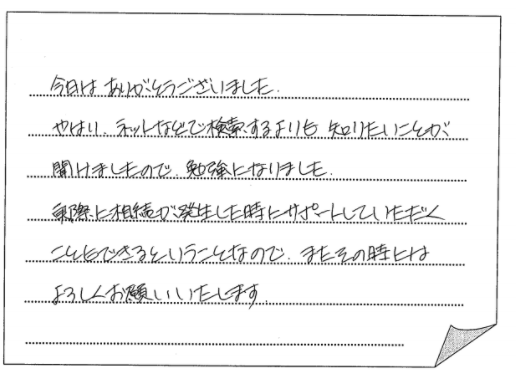 今日は ありがとうございました.
やはり、ネットなどで検索するよりも 知りたいことが
聞けましたので、勉強になりました.
実際に相続が発生した時にサポートしていただく
こともできるということなので、またその時には
よろしくお願いいたします.